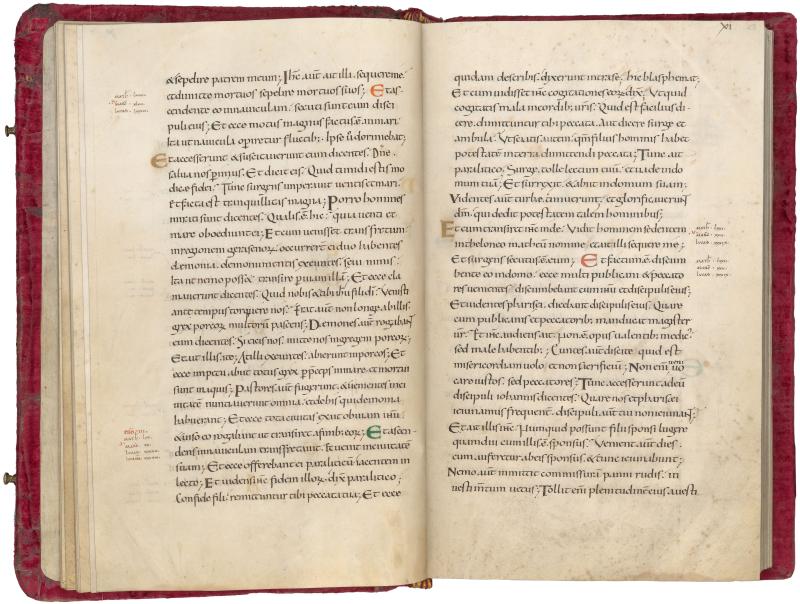 & sepelire patrem meum; Ihc aut ait illi. sequere me.
et dimitte mortuos sepelire mortuos suos; Et as
cendente eo in nauiculam. secuti sunt eum disci
puli eius; Et ecce motus magnus factus ē in mari.
ita ut nauicula operiretur fluctib; Ipse ū dormiebat;
Et accesserunt & suscitauerunt eum dicentes. Dne.
salua nos perimus. Et dicit eis. Quid timidi estis mo
dicae fidei. Tunc surgens imperauit uentis et mari.
& facta est tranquillitas magna; Porro homines
mirati sunt dicentes. Qualis ē hic. quia uenti et
mare oboediunt ei; Et cum uenisset trans fretum
in regionem gerasenorum. occurrerunt ei duo habentes
demonia. de monumentis exeuntes. seui nimis.
ita ut nemo posset transire per uiam illam; Et ecce cla
mauerunt dicentes. Quid nobis et tibi ihu fili di. Venisti
ante tempus torquere nos. Erat aut non longe ab illis.
grex porcorum multorum pascens; Demones aut rogabant
eum dicentes. Si eicis nos. mitte nos in gregem porcorum;
Et ait illis. ite; At illi exeuntes. abierunt in porcos; Et
ecce impetu abiit totus grex p preceps in mare. et mortui
sunt in aquis; Pastores aut fugerunt. & uenientes in ci
uitatem nuntiauerunt omnia. et de his qui demonia
habuerant; Et ecce tota ciuitas exiit obuiam ihu
& uiso eo rogabant ut transiret a finib; eorum; Et ascen
dens in nauiculam transfretauit. & uenit in ciuitatē
suam; Et ecce offerebant ei paraliticū iacentem in
lecto; Et uidens ihc fidem illorum. dixit paralitico;
Confide fili. remittuntur tibi peccata tua; Et ecce
xi
quidam de scribis. dixerunt intra se. hic blasphemat;
Et cum uidisset ihc cogitationes eorum. dixit. Ut quid
cogitatis mala in cordib; uris. Quid est facilius di
cere. dimittuntur tibi peccata. Aut dicere surge et
ambula. Ut sciatis autem. qm filius hominis habet
potestatē in terra dimittendi peccata; Tunc ait
paralitico; Surge. tolle lectum tuū. et uade in do
mum tuā; Et surrexit. & abiit in domum suam;
Videntes aut turbae. timuerunt. et glorificauerunt
dm. qui dedit potestatem talem hominibus;
Et cum transiret inde ihc. Uidit hominem sedentem
in theloneo matheū nomine. et ait illi sequere me;
Et surgens secutus ē eum; Et factum ē. discum
bente eo in domo. ecce multi publicani & peccato
res uenientes. discumbebant cum ihu et discipulis eius;
Et uidentes pharisei. dicebant discipulis eius. Quare
cum publicanis et peccatorib; manducat magister
ur. Et ihc audiens ait; Non ē opus ualentib; medic
sed male habentib;; Euntes aut discite. quid est
misericordiam uolo. et non sacrificiū; Non enī ueni uo
care iustos. sed peccatores; Tunc accesserunt ad eū
discipuli iohannis dicentes. Quare nos et pharisei
ieiunamus frequent. discipuli aut tui non ieiunant;
Et ait illis ihc. Numquid possunt filii sponsi lugere
quamdiu cum illis ē sponsus. Venient aut dies.
cum auferetur ab eis sponsus. & tunc ieiunabunt;
Nemo aut inmittit commissurā panni rudis. in
uestimtum uetus; Tollit enī plenitudinē eius. a uesti